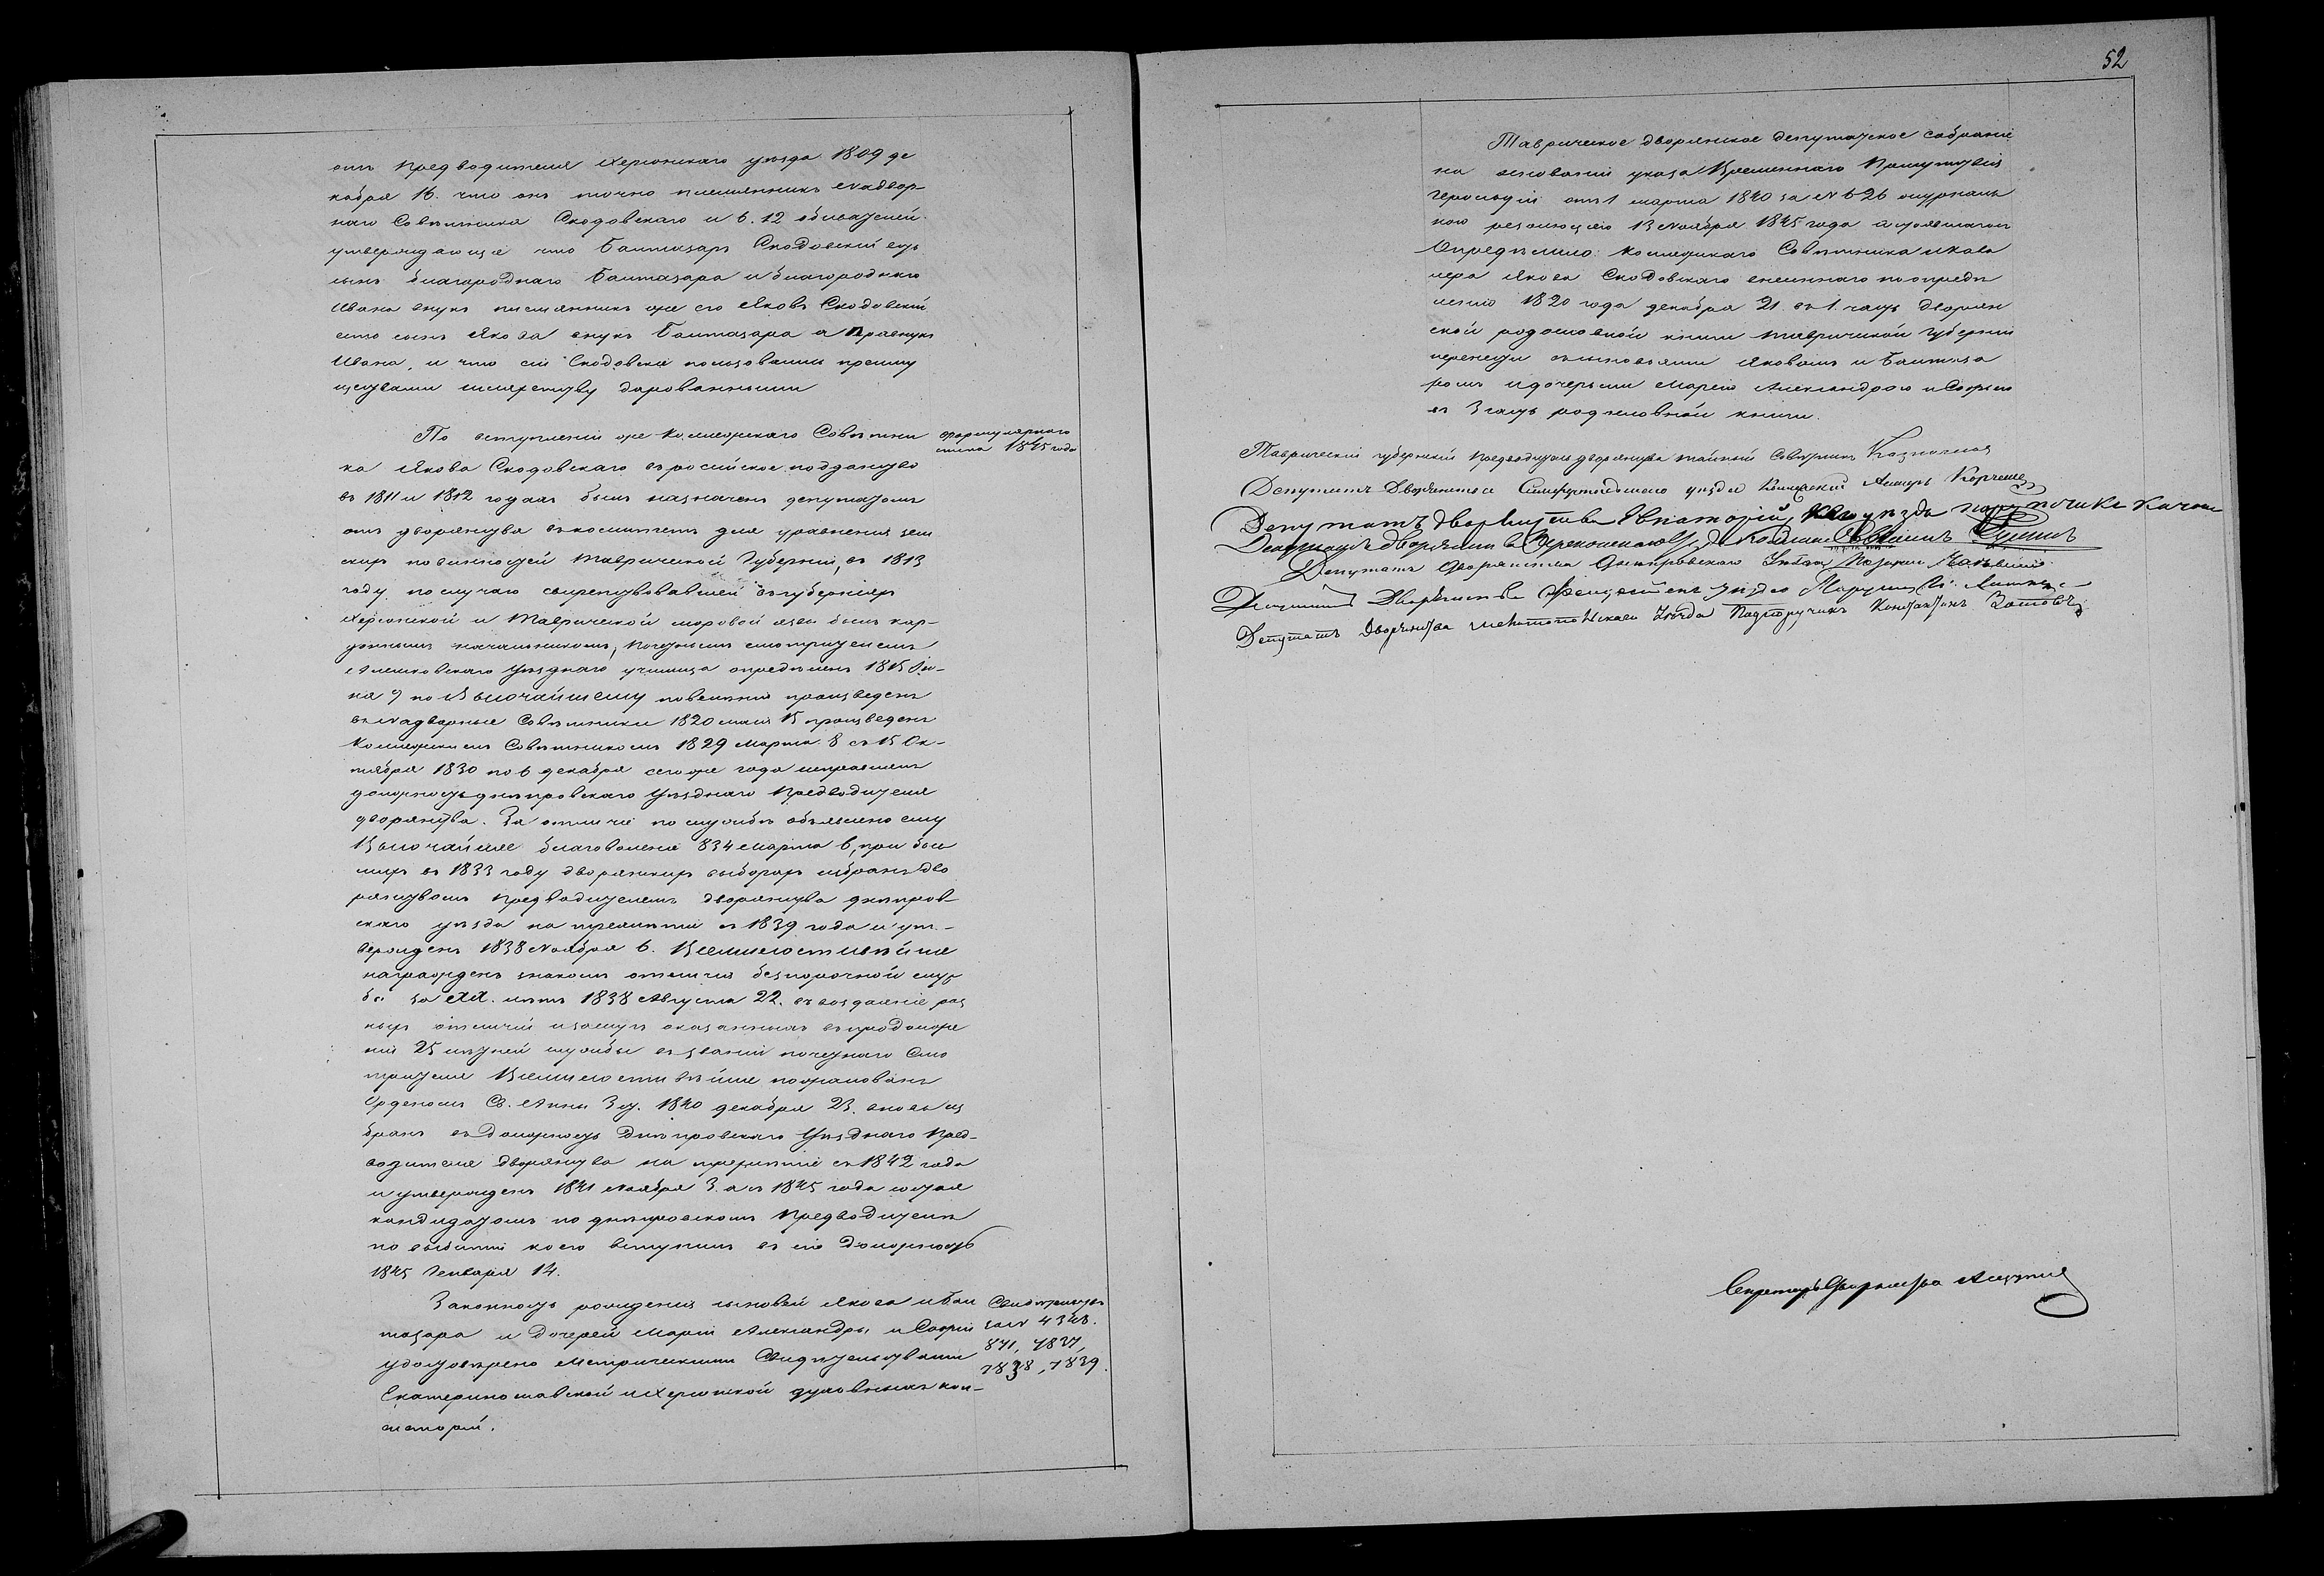 отъ предводителя Херсонскаго уѣзда 1809 де
кабря 16. что онъ точно племянникъ Надвор-
наго Совѣтника Скодовскаго и б. 12 обывателей
утверждающiе что Балтазаръ Скодовскiй есть
сынъ благороднаго Балтазара и благороднаго
Ивана внукъ племянникъ же его Яковъ Скодовскiй
сынъ Якова внукъ Балтазара а Правнукъ
Ивана, и что сiи Скодовскiе пользовались преиму
ществами шляхетству дарованными
По вступленiи же Коллежскаго Совѣтни
формулярнаго
списка 1845 года
ка Якова Скодовскаго въ россiйское подданство
въ 1811 и 1812 годахъ былъ назначенъ депутатомъ
отъ дворянства въ комитетъ для уравненiя зем
скихъ повинностей Таврической Губернiи, въ 1813
году по случаю свирепствовавшей въ губернiяхъ
Херсонской и Таврической моровой язвы былъ кар-
тоннымъ начальникомъ, Почетнымъ смотрителемъ
Алешковскаго Уѣзднаго училища опредѣленъ 1815 Iю-
ня 9 по Высочайшему повелѣнiю произведенъ
въ Надворные Совѣтники 1820 мая 15 произведенъ
Коллежскимъ Совѣтникомъ 1829 Марта 8 съ 15 Ок-
тября 1830 по 6 декабря сегоже года исправлялъ
должность днѣпровскаго Уѣзднаго Предводителя
дворянства. За отличiе по службѣ объявлено ему
Высочайшее благоволенiе 834 Марта 6, при быв
шихъ въ 1833 году дворянскихъ выборахъ избранъ дво
рянствомъ Предводителемъ дворянства днѣпров-
скаго уѣзда на трехлѣтiе съ 1839 года и ут-
вержденъ 1838 Ноября 6. Всемилостивѣйше
награжденъ знакомъ отличiя безпорочной служ
бы за XX. лѣтъ 1838 Августа 22. въ воздаянiе раз
ныхъ отличiй и заслугъ оказанныхъ въ продолже
нiи 25 лѣтней службы въ званiи почетнаго Смо
трителя Всемилостивѣйше пожалованъ
Орденомъ Св. Анны 3 ст. 1840 декабря 23. вновь из
бранъ въ Должность Днѣпровскаго Уѣзднаго Пред-
водителя дворянства на трехлѣтiе съ 1842 года
и утвержденъ 1841 Ноября 3. а съ 1845 года состоя
кандидатомъ по днѣпровскомъ Предводителѣ
по выбытiи коего вступилъ въ сiю Должность
1845 Генваря 14.
Законность рожденiя сыновей Якова и Бал
Свидѣтельства
тазара и Дочерей Марiи Александры и Софiи
за N 4348.
удостовѣрено Метрическими Свидѣтельствами
841, 7837,
7838, 7839.
Екатеринославской и Херсонской духовныхъ кон-
систорiй.
52
Таврическое дворянское депутатское собранiе
на основанiи указа Временнаго Присутствiя
Герольдiи отъ 1 марта 1840 за N 626 журналь
ною резолюцiею 13 Ноября 1845 года
Опредѣлило: Коллежскаго Совѣтника и Кава
лера Якова Скодовскаго внесеннаго по опредѣ
ленiю 1820 года декабря 21. въ 1. часть Дворян
ской родословной книги Таврической Губернiи
перенести съ сыновьями Яковомъ и Балтаза
ромъ и дочерьми Марiею Александрою и Софiею
въ 3 часть родословной книги.
Таврическiй губернскiй Предводитель дворянства тайный Совѣтникъ Казначеевъ
Депутатъ Дворянства Симферопольскаго уѣзда
Депутатъ дворянства Евпаторiйскаго уѣзда поручикъ
Депутатъ дворянства Перекопскаго
Депутатъ Дворянства Днѣпровскаго Уѣзда
Депутатъ Дворянства Феодосiйск. уѣзда
Депутатъ Дворянства Мелитопольскаго Уѣзда Подпоручикъ Константинъ
Секретарь Дворянства